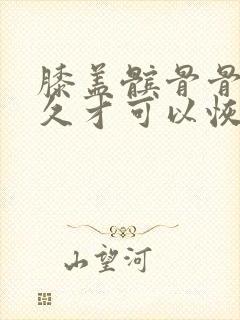 膝盖髌骨骨
久才可以恢
山望河